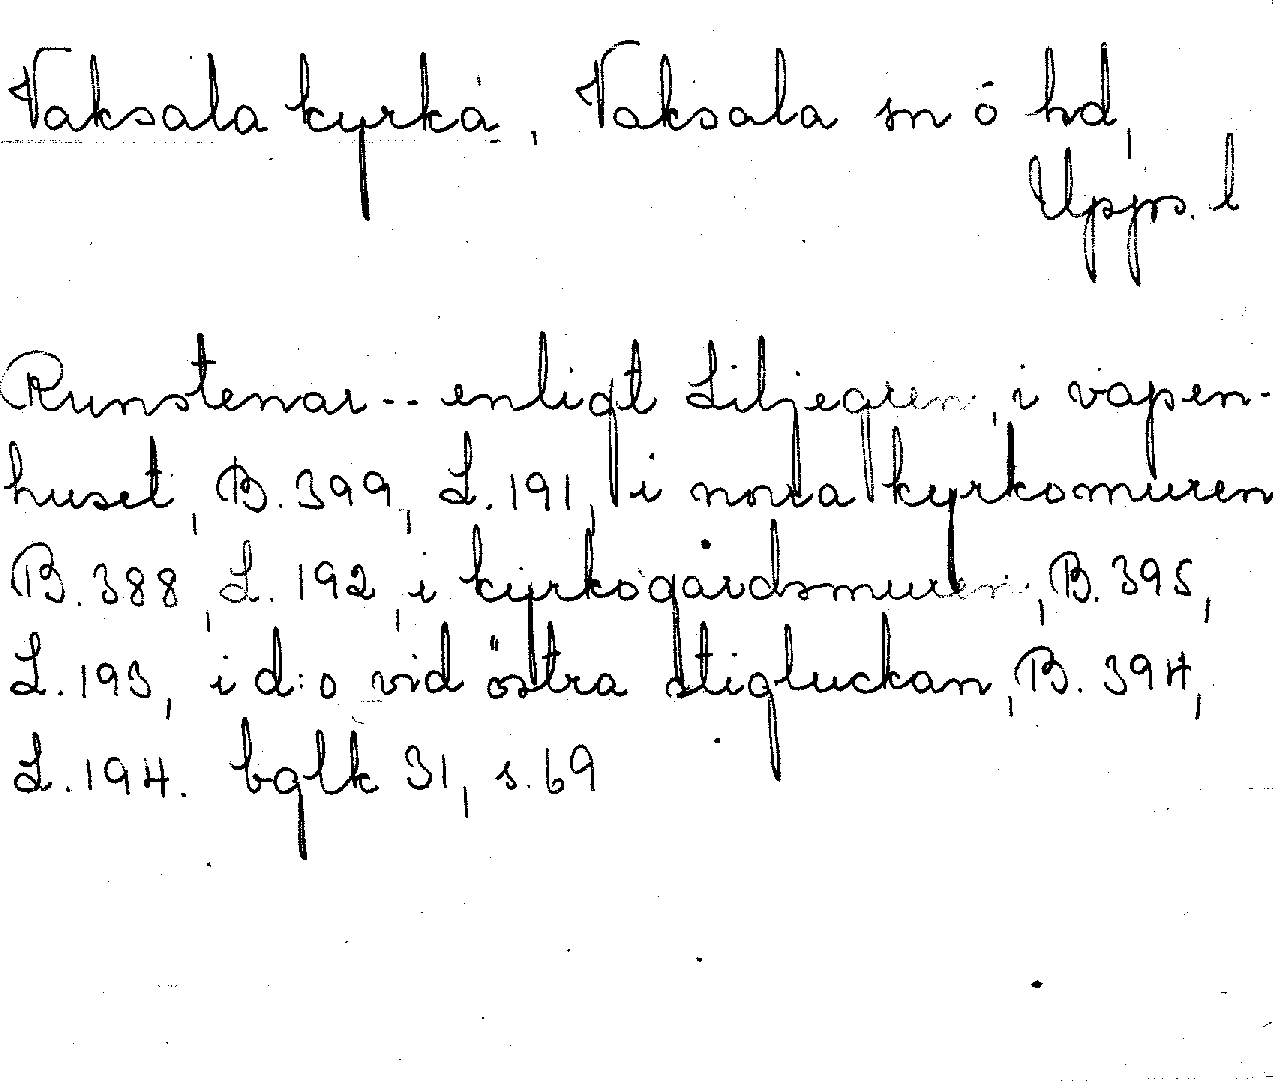 Vaksala kyrka, Vaksala sn o hd,
Upps. l
Runstenar -- enligt Liljegren, i vapen-
huset, B. 399, L. 191, i norra kyrkomuren
B. 388, L. 192, i kyrkogårdsmuren, B. 395,
L. 193, i d:o vid östra stigluckan, B. 394,
L. 194. bglk 31, s. 69